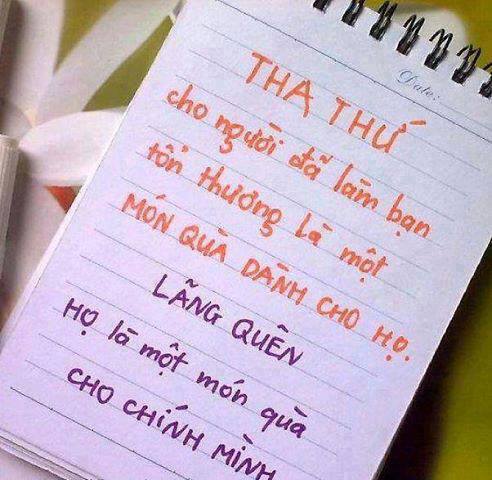 Date:
THA THỨ
cho người đã làm bạn
tổn thương là một
MÓN QUÀ DÀNH CHO HỌ.
LÃNG QUÊN
HỌ là một món quà
CHO CHÍNH MÌNH